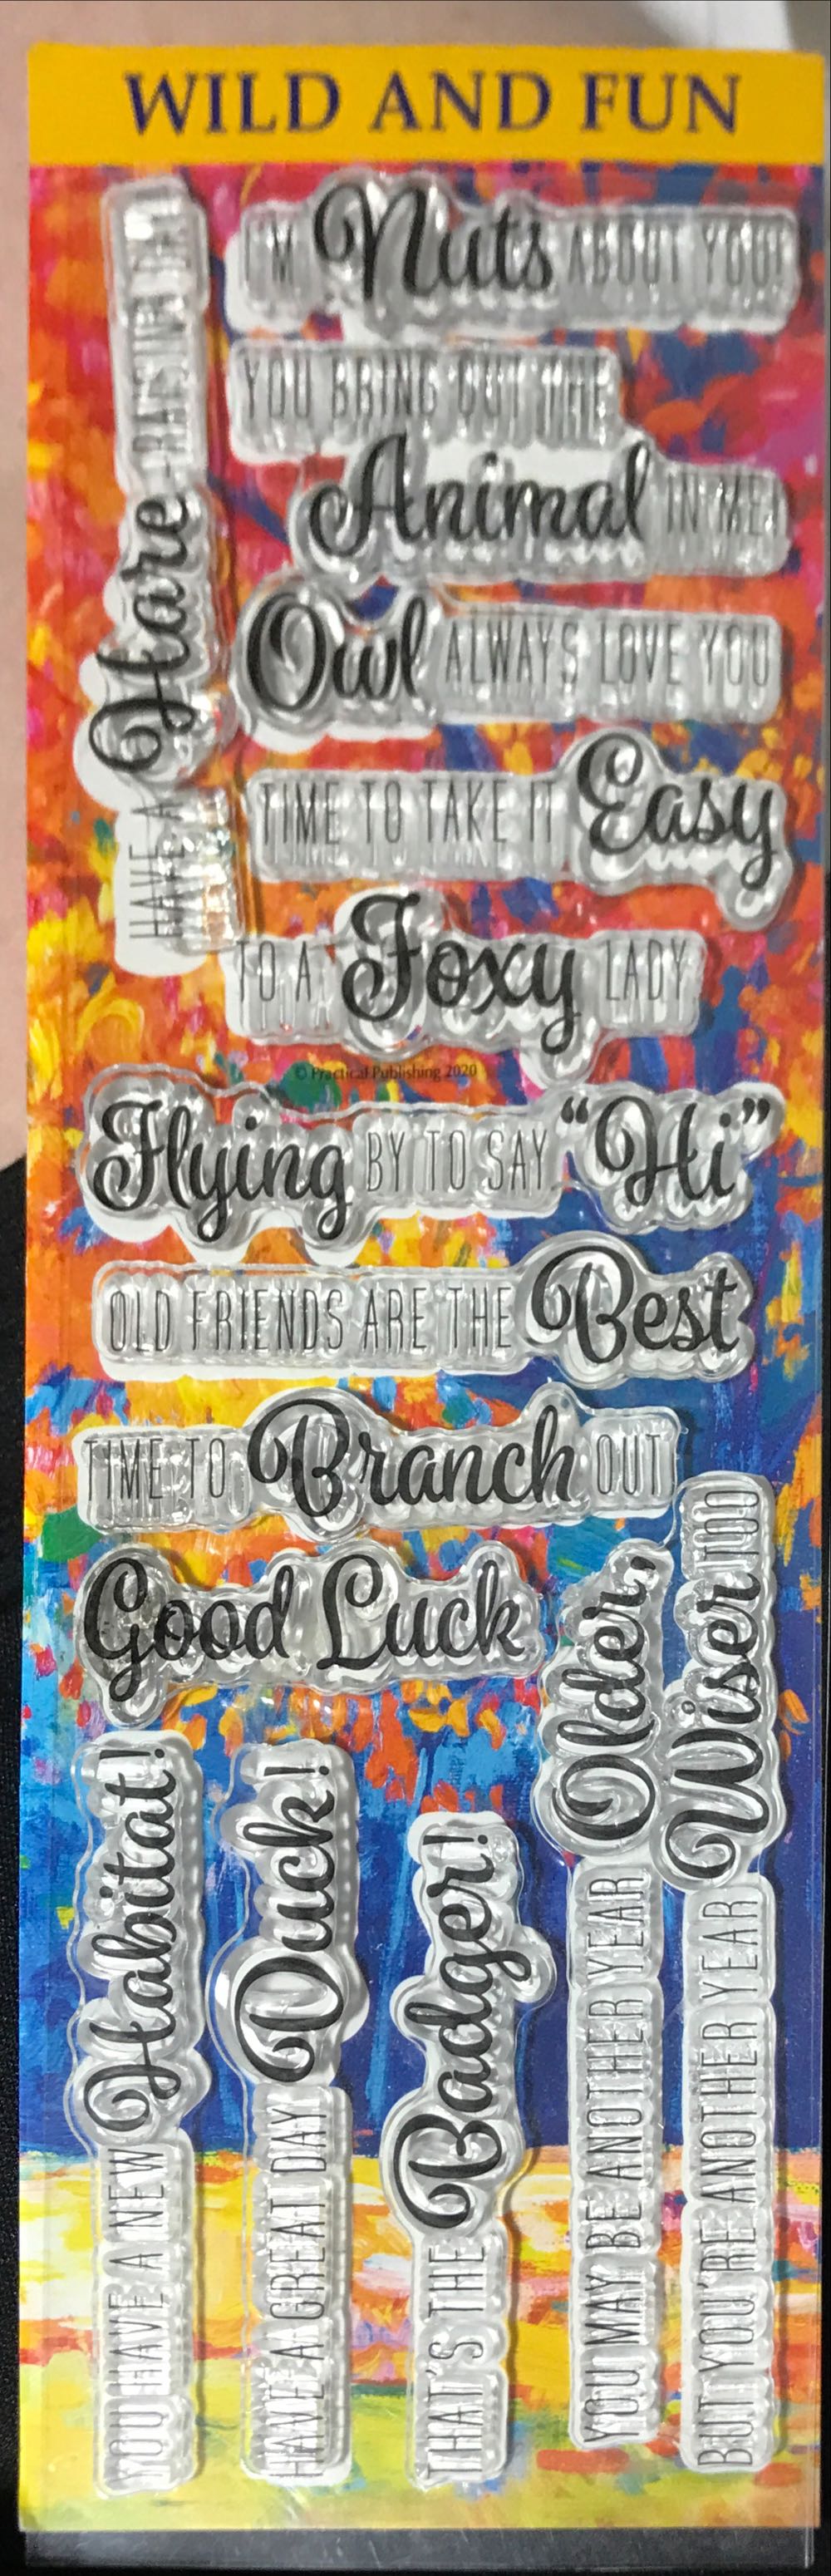 WILD AND FUN
HAVE A Hare-RAISING DAY
I'M Nuts ABOUT YOU!
YOU BRING OUT THE
Animal IN ME!
Owl ALWAYS LOVE YOU
TIME TO TAKE IT Easy
TO A Foxy LADY
© Practical Publishing 2020
Flying BY TO SAY “Hi”
OLD FRIENDS ARE THE Best
TIME TO Branch OUT
Good Luck
YOU HAVE A NEW Habitat!
HAVE A GREAT DAY Duck!
THAT'S THE Badger!
YOU MAY BE ANOTHER YEAR Older,
BUT YOU'RE ANOTHER YEAR Wiser TOO